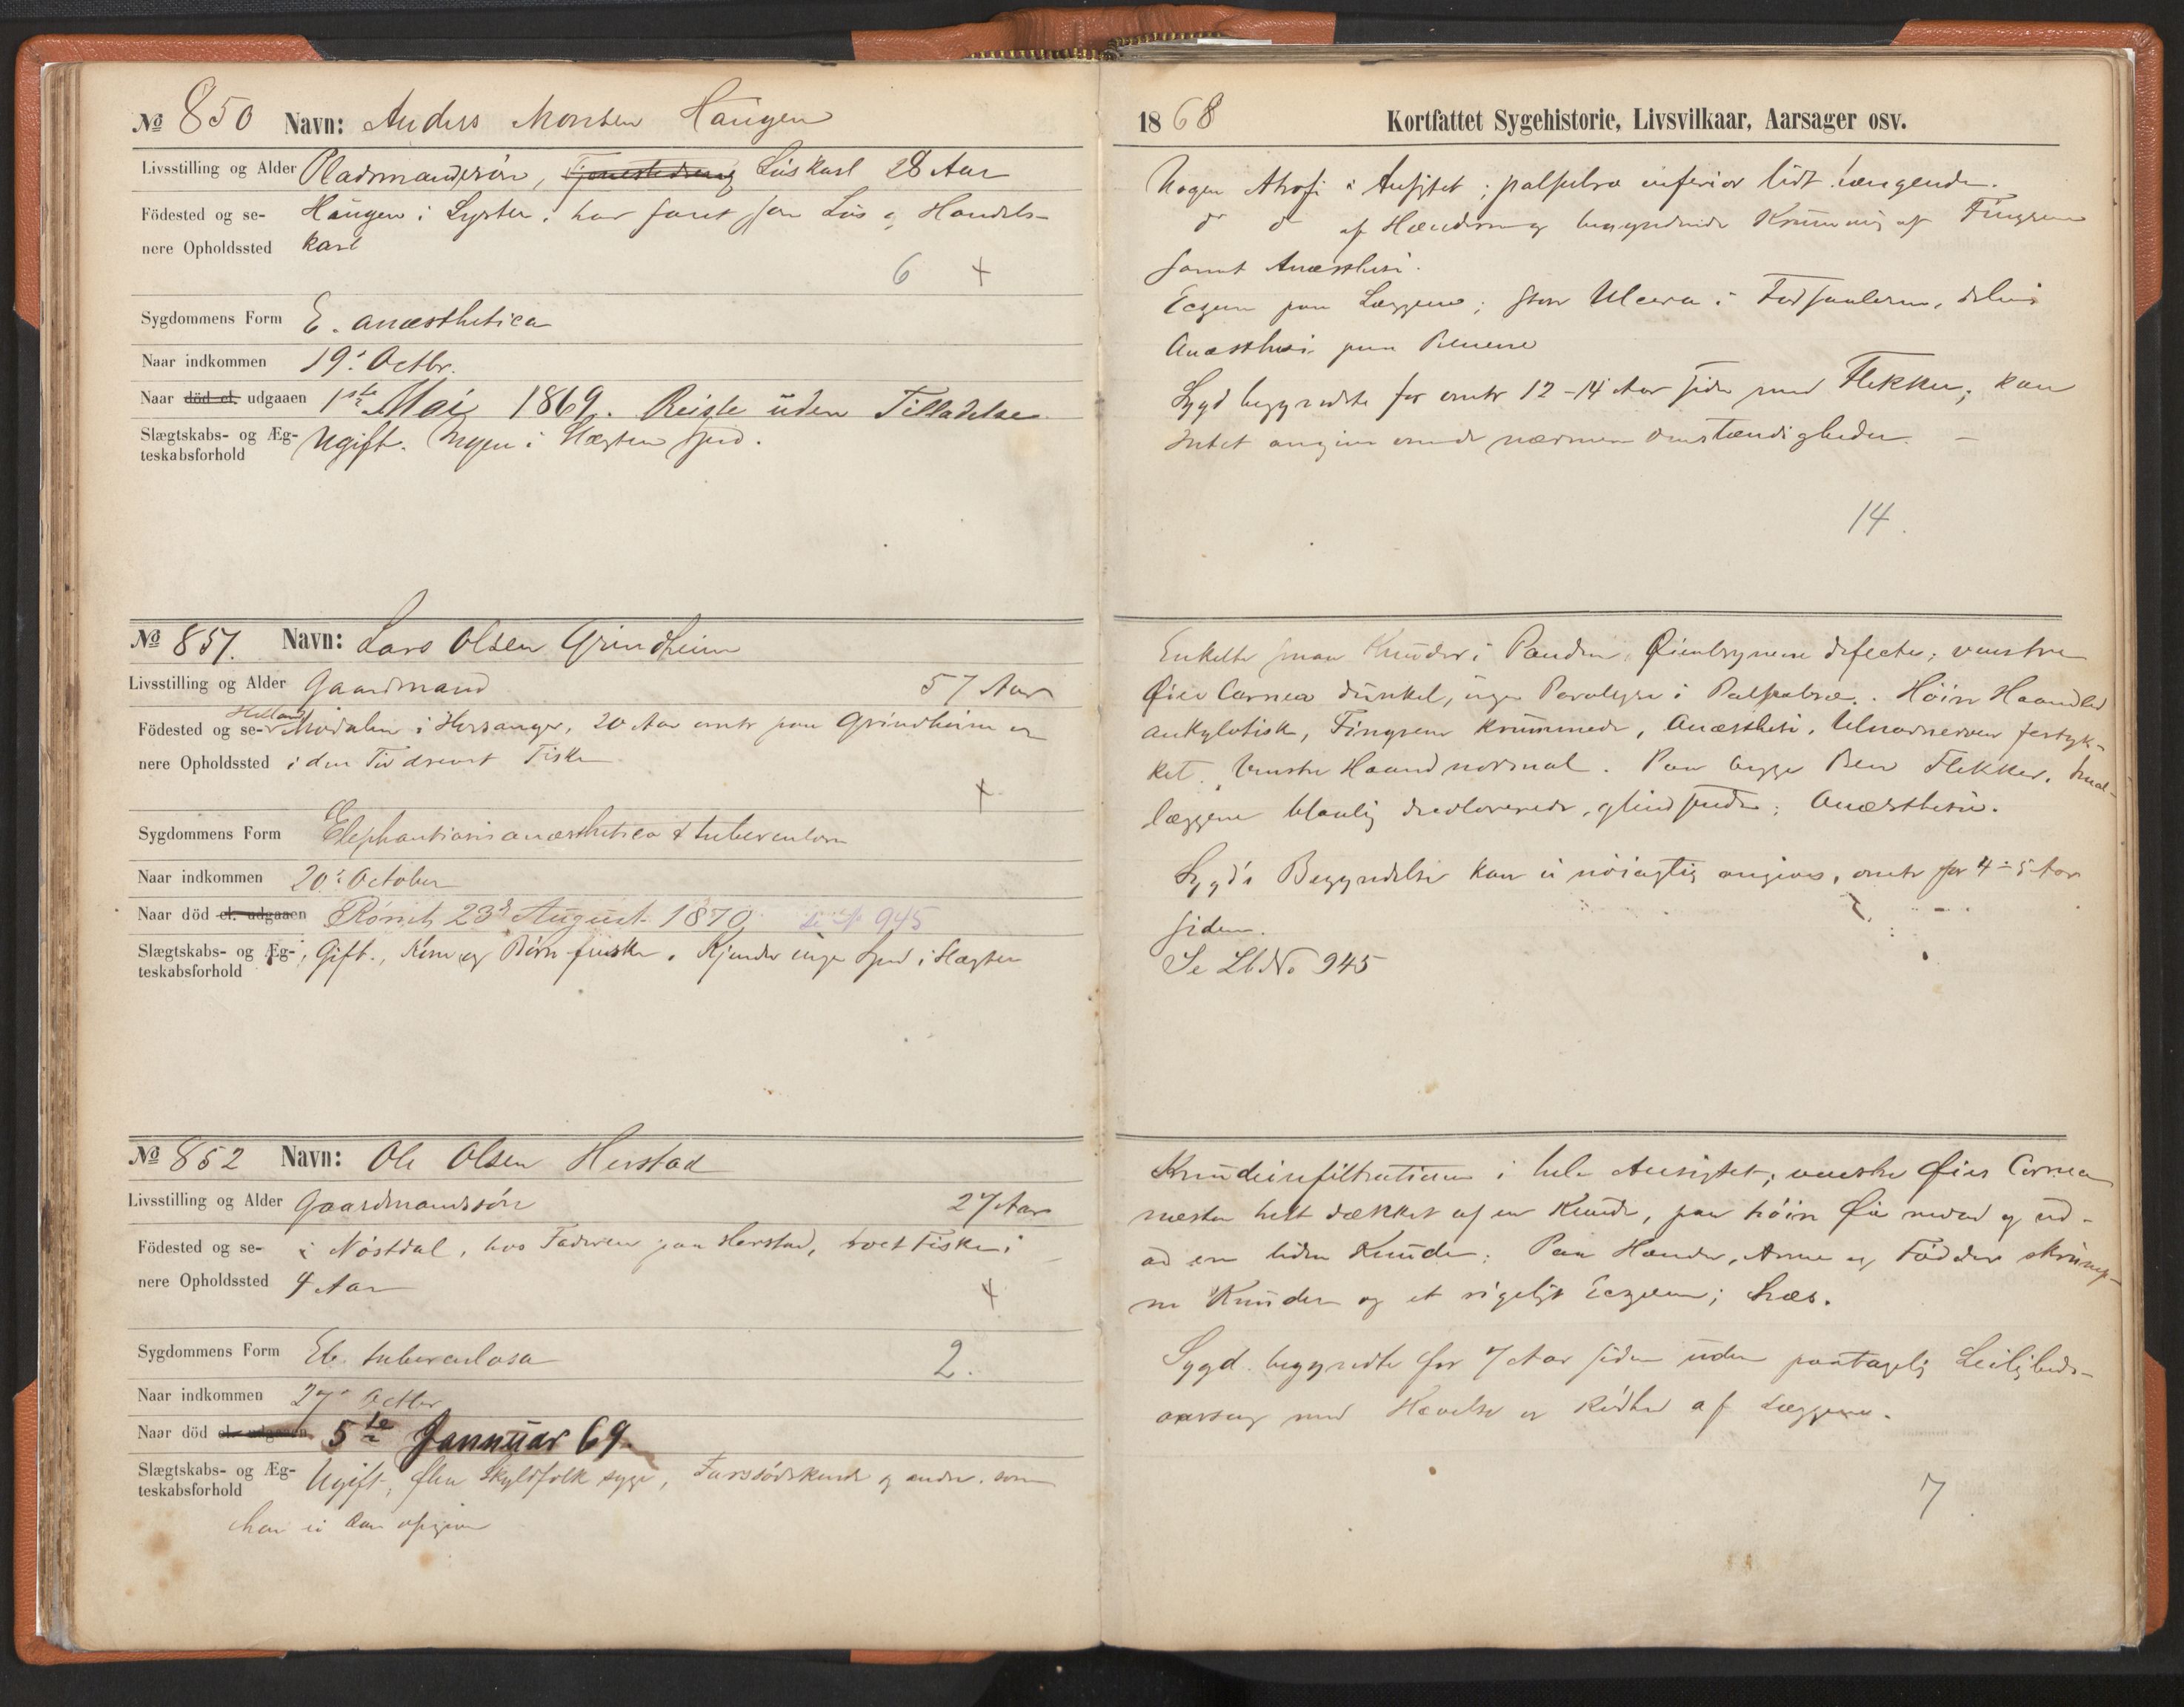 No 850 Navn: Anders Monsen Haugen
Livsstilling og Alder Pladsmandssøn, Tjenestedreng Løskarl 28 Aar
Födested og se- Haugen i Lyster, har faret som Løs og Handels-
nere Opholdssted karl
6 +
Sygdommens Form E. anæsthetica
Naar indkommen 19. Octbr.
Naar död el. udgaaen 1ste Mai 1869. Reiste uden Tilladelse
Slægtskabs- og Æg- Ugift. Ingen i Slægten sped.
teskabsforhold
No 851. Navn: Lars Olsen Grindheim
Livsstilling og Alder Gaardmand 57 Aar
Helland
Födested og se- Modalen i Hosanger, 20 Aar omtr paa Grindheim og
nere Opholdssted i den Tid drevet Fiske
+
Sygdommens Form Elephantiasis anæsthetica & tuberculosa
Naar indkommen 20. October
Naar död el. udgaaen Rømt 23d August 1870 se No 945
Slægtskabs- og Æg- Gift. Kone og Børn friske. Kjender ingen Sped i Slægten
teskabsforhold
No 852 Navn: Ole Olsen Herstad
Livsstilling og Alder Gaardmandssön 27 Aar
Födested og se- i Nöstdal, hos Faderen paa Herstad, roet Fiske i
nere Opholdssted 4 Aar
+
Sygdommens Form El. tuberculosa 2.
Naar indkommen 27 Octbr
Naar död el. udgaaen 5te Januar 69.
Slægtskabs- og Æg- Ugift, flere Skyldfolk syge, Farssödskende og andre. som
teskabsforhold
han ei kan opgive
1868 Kortfattet Sygehistorie, Livsvilkaar, Aarsager osv.
Nogen Atrofi i Ansigtet; palpebra inferior lidt hængende.
do do af Hænderne og begyndende Krumning af Fingrene
samt Anæsthesi.
Eczem paa Læggene; store Ulcera i Fodsaalerne, delvis
Anæsthesi paa Benene
Sygd begyndte for omtr 12-14 Aar siden med Flekker; kan
Intet angive om de nærmere Omstændigheder. -
14.
Enkelte smaa Knuder i Panden, Øienbrynene defecte; venstre
Øies Cornea dunkel, ingen Paralyse i Palpebræ. Höire Haandled
ankylotisk, Fingrene krummede, Anæsthesi, Ulnarnerven fortyk-
ket. Venstre Haand normal. Paa begge Ben Flekker. Smal-
læggene blaalig decolorerede, glindsende; Anæsthesi.
Sygd's Begyndelse kan ei nöiagtig angives, omtr for 4-5 Aar
siden.
Se Lb No 945
Knudeinfiltrationer i hele Ansigtet; venstre Øies Cornea
næsten helt dækket af en Knude, paa höire Øie nedad og ud-
ad en liden Knude. Paa Hænder, Arme og Fødder skrump-
ne Knuder og et rigeligt Eczem; Hæs.
Sygd. begyndte for 7 Aar siden uden paatagelig Leiligheds-
aarsag med Hævelse og Rödhed af Læggene.
7